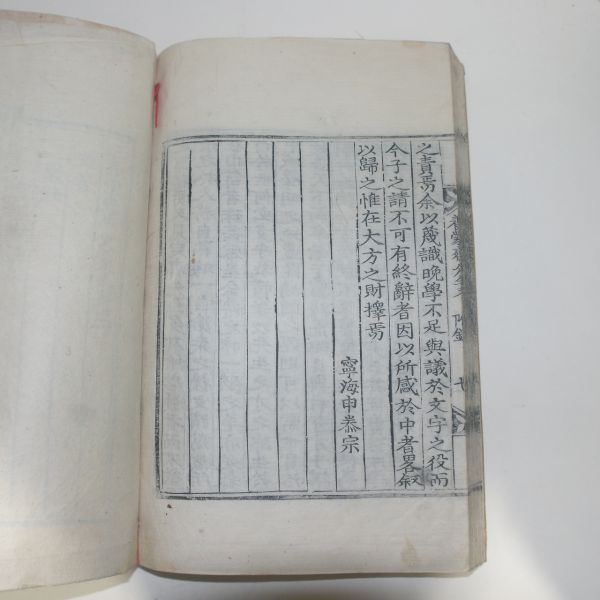 之責焉余以蔑識晩學不足與議於文字之役而
今子之請不可有終辭者因以所感於中者畧叙
以歸之惟在大方之財擇焉
寧海申泰宗
附錄